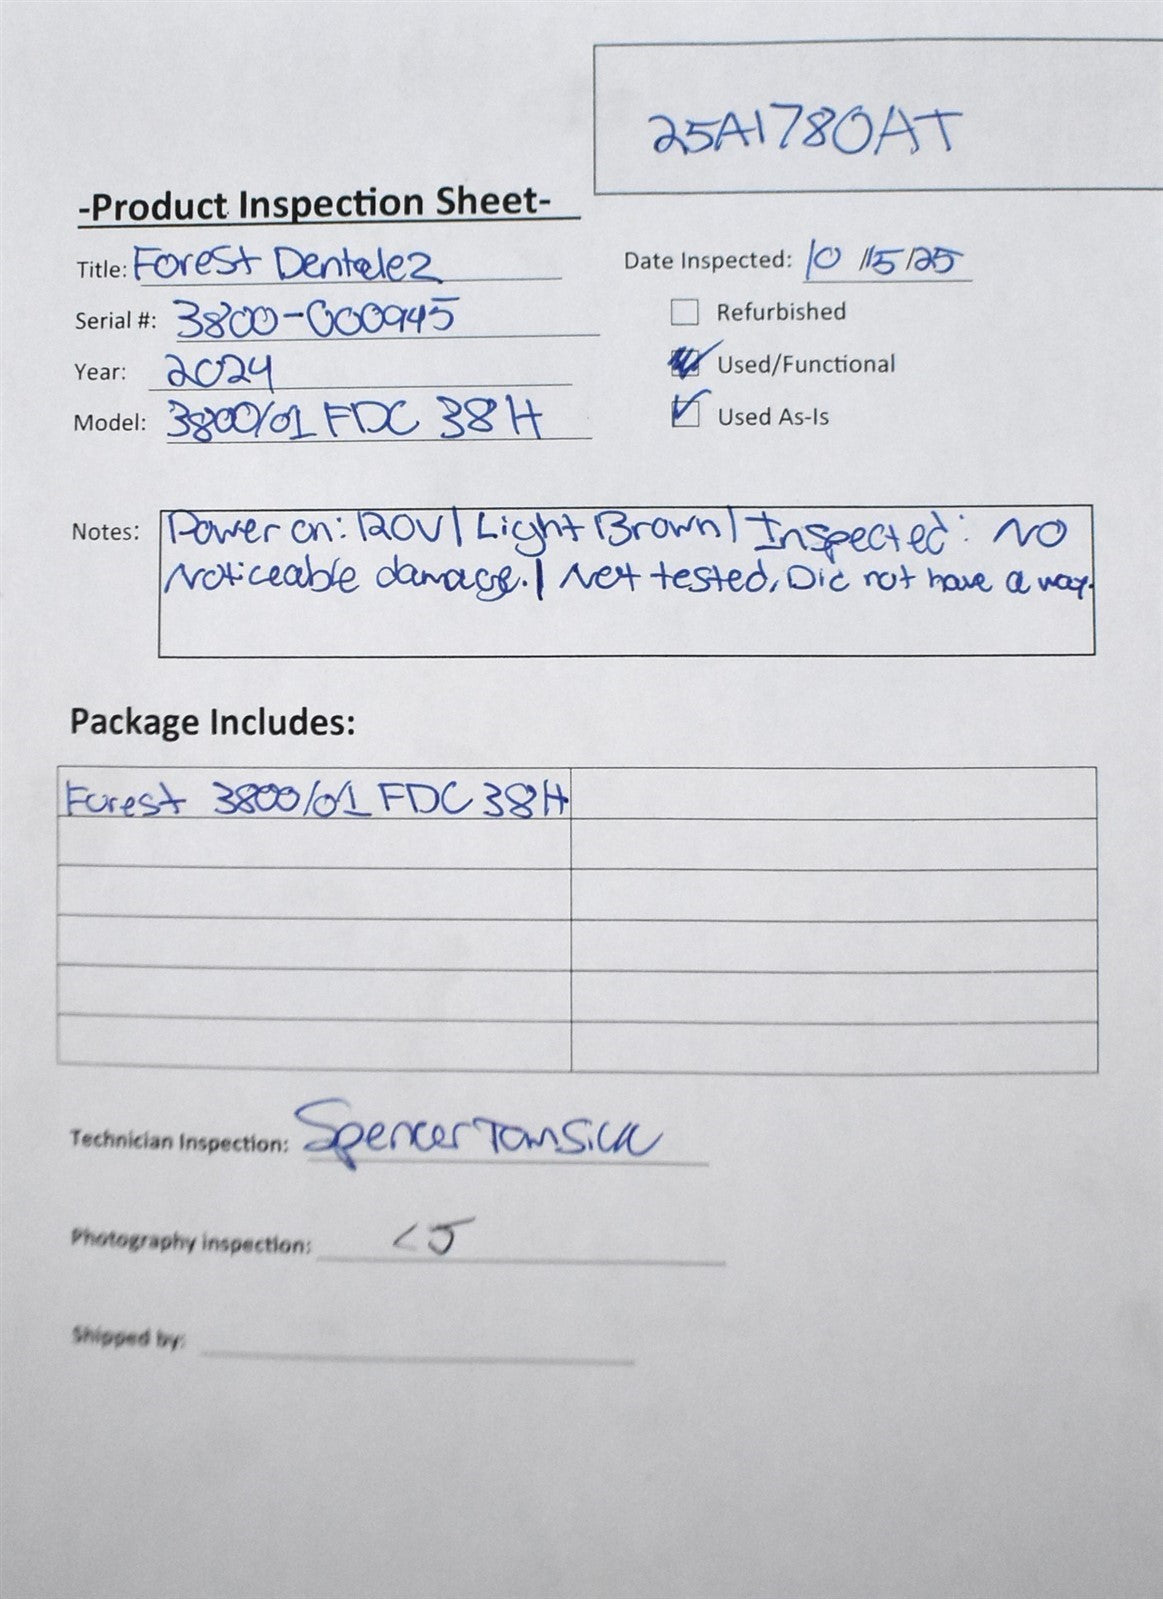 25A1780AT
-Product Inspection Sheet-
Title: Forest Dentalez
Date Inspected: 10/15/25
Serial #: 3800-000945
Refurbished
Year: 2024
Used/Functional
Model: 3800/01 FDC 38H
Used As-Is
Notes: Power on: 120V | Light Brown | Inspected: NO
Noticeable damage. | Not tested, Did not have a way.
Package Includes:
Forest 3800/01 FDC 38H
Technician Inspection: Spencer
Photography inspection:
Shipped by: